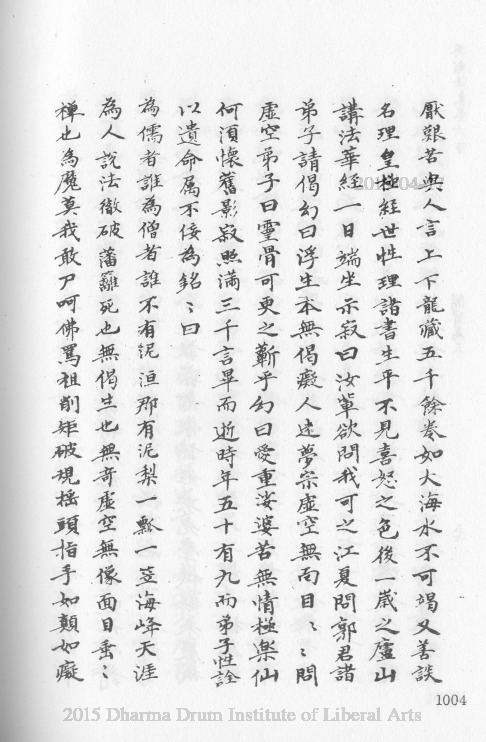 厭艱苦與人言上下龍藏五千餘卷如大海水不可竭又善談
名理皇極經世性理諸書生平不見喜怒之色後一歲之廬山
講法華經一日端坐示寂曰汝輩欲問我可之江夏問郭君諸
弟子請偈幻曰浮生本無偈癡人逐夢宗虛空無面目〻〻問
虛空弟子曰靈骨可更之蘄乎幻曰愛重娑婆苦無情極樂仙
何須懷舊影寂照滿三千言畢而逝時年五十有九而弟子性詮
以遺命属不佞為銘〻曰
為儒者誰為僧者誰不有泥洹那有泥梨一瓢一笠海峰天涯
為人說法徹破藩籬死也無偈生也無奇虛空無像面目垂〻
禪也為魔莫我敢尸呵佛罵祖削矩破規搖頭指手如顛如癡
1004
2015 Dharma Drum Institute of Liberal Arts